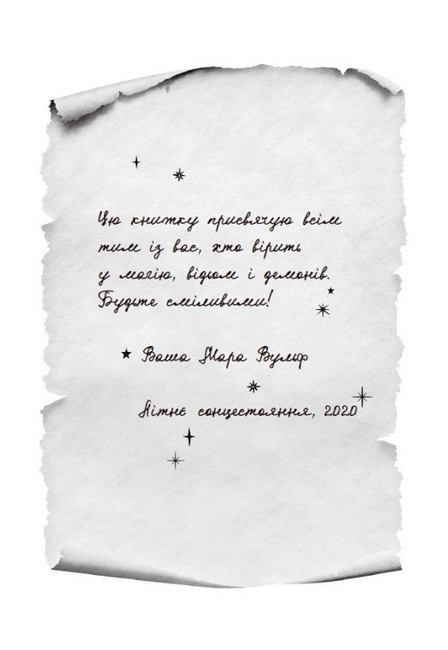 Цю книжку присвячую всім
тим із вас, хто вірить
у магію, відьом і демонів.
Будьте сміливими!
Ваша Мара Вульф
Літнє сонцестояння, 2020